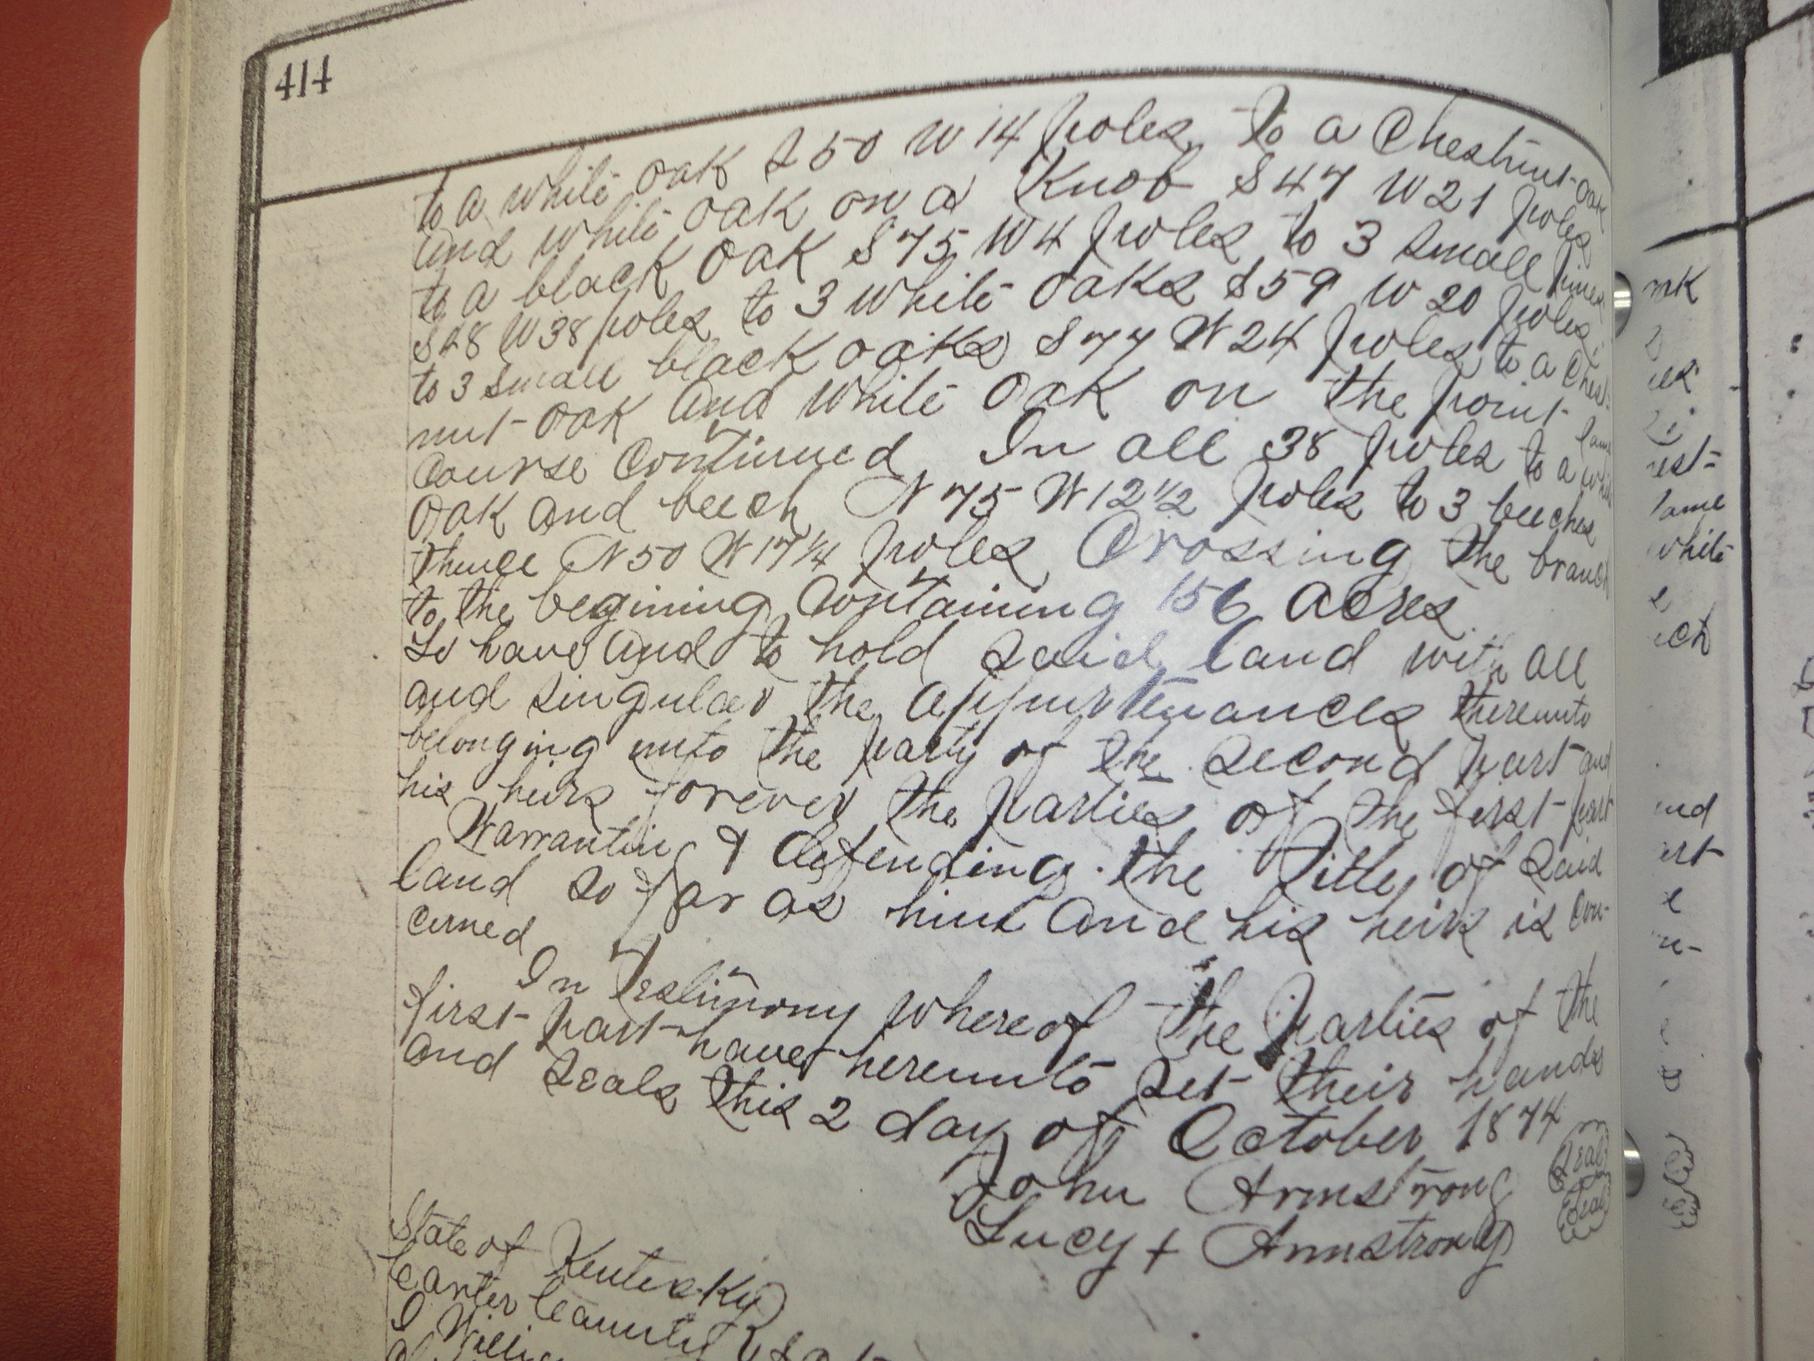 414
to a white oak S 50 W 14 poles to a Chestnut-oak
and white oak on a Knob S 47 W 21 poles
to a black oak S 75 W 4 poles to 3 small pines
S 28 W 38 poles to 3 white oaks S 59 W 20 poles
to 3 small black oaks S 77 W 24 poles to a Chest-
nut-oak and white oak on the point same
Course Continued In all 38 poles to a white
oak and beech N 75 W 12 1/2 poles to 3 beeches
thence N 50 W 17 1/4 poles Crossing the branch
to the begining Containing 156 acres
To have and to hold said land with all
and singular the appurtenances thereunto
belonging unto the party of the second part and
his heirs forever the parties of the first-part
Warranting & defending the Title of said
land so far as him and his heirs is Con-
cerned
In Testimony whereof the parties of the
first-part-have hereunto set their hands
and seals this 2 day of October 1874
John Armstrong Seal
Lucy + Armstrong Seal
State of Kentucky
Carter County
I
mk
est-
same
white